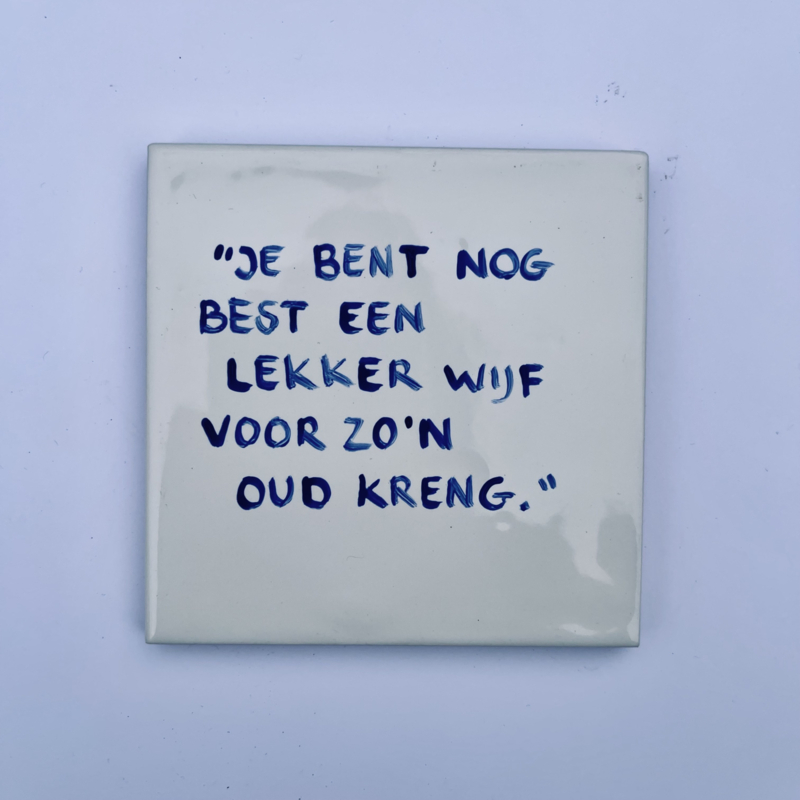 "JE BENT NOG
BEST EEN
LEKKER WIJF
VOOR ZO'N
OUD KRENG."